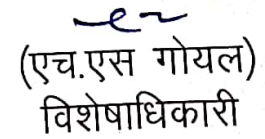 (एच.एस गोयल)
विशेषाधिकारी